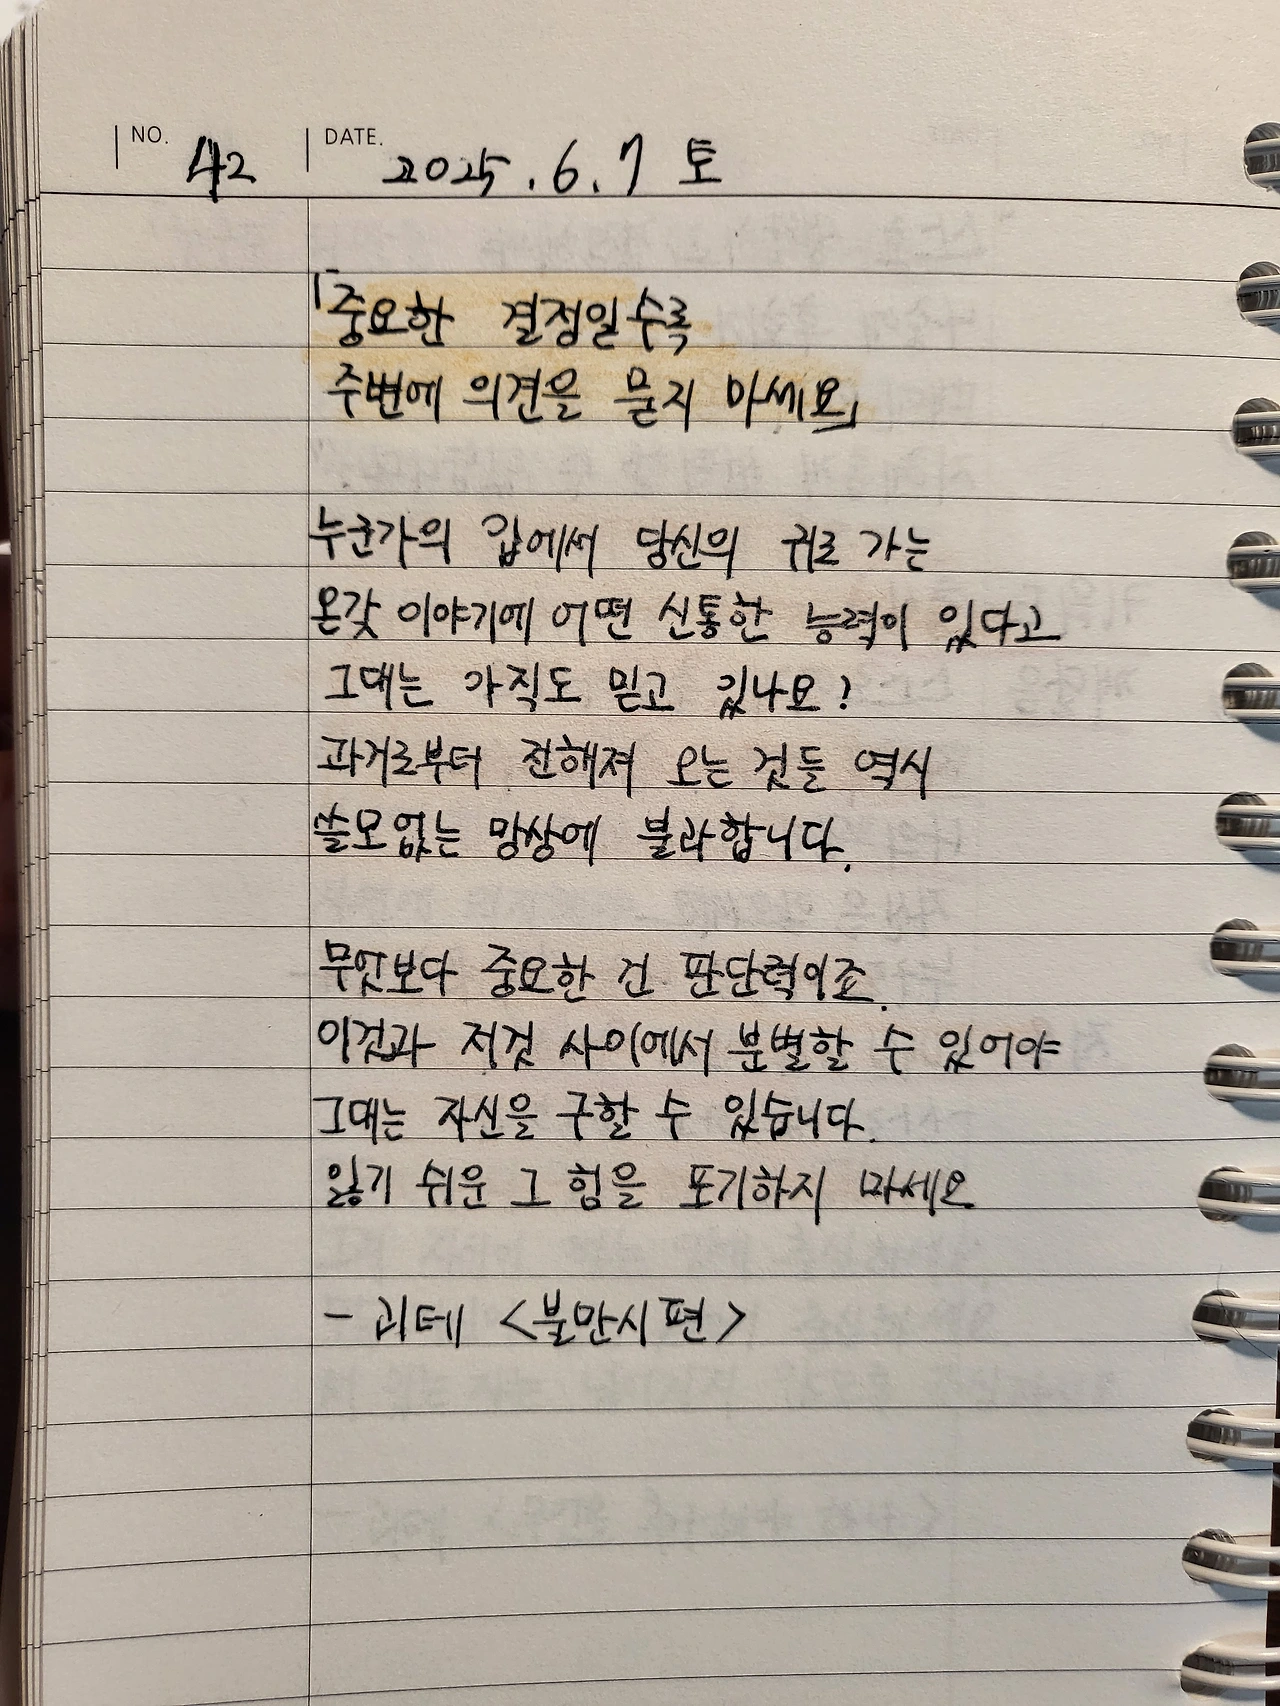 NO. 42 DATE. 2025.6.7 토
「중요한 결정일수록
주변에 의견을 묻지 마세요」
누군가의 입에서 당신의 귀로 가는
온갖 이야기에 어떤 신통한 능력이 있다고
그대는 가직도 믿고 있나요?
과거로부터 전해져 오는 것들 역시
쓸모없는 망상에 불과합니다.
무엇보다 중요한 건 판단력이죠.
이것과 저것 사이에서 분별할 수 있어야
그대는 자신을 구할 수 있습니다.
잃기 쉬운 그 힘을 포기하지 마세요
- 괴테 <불만시편>